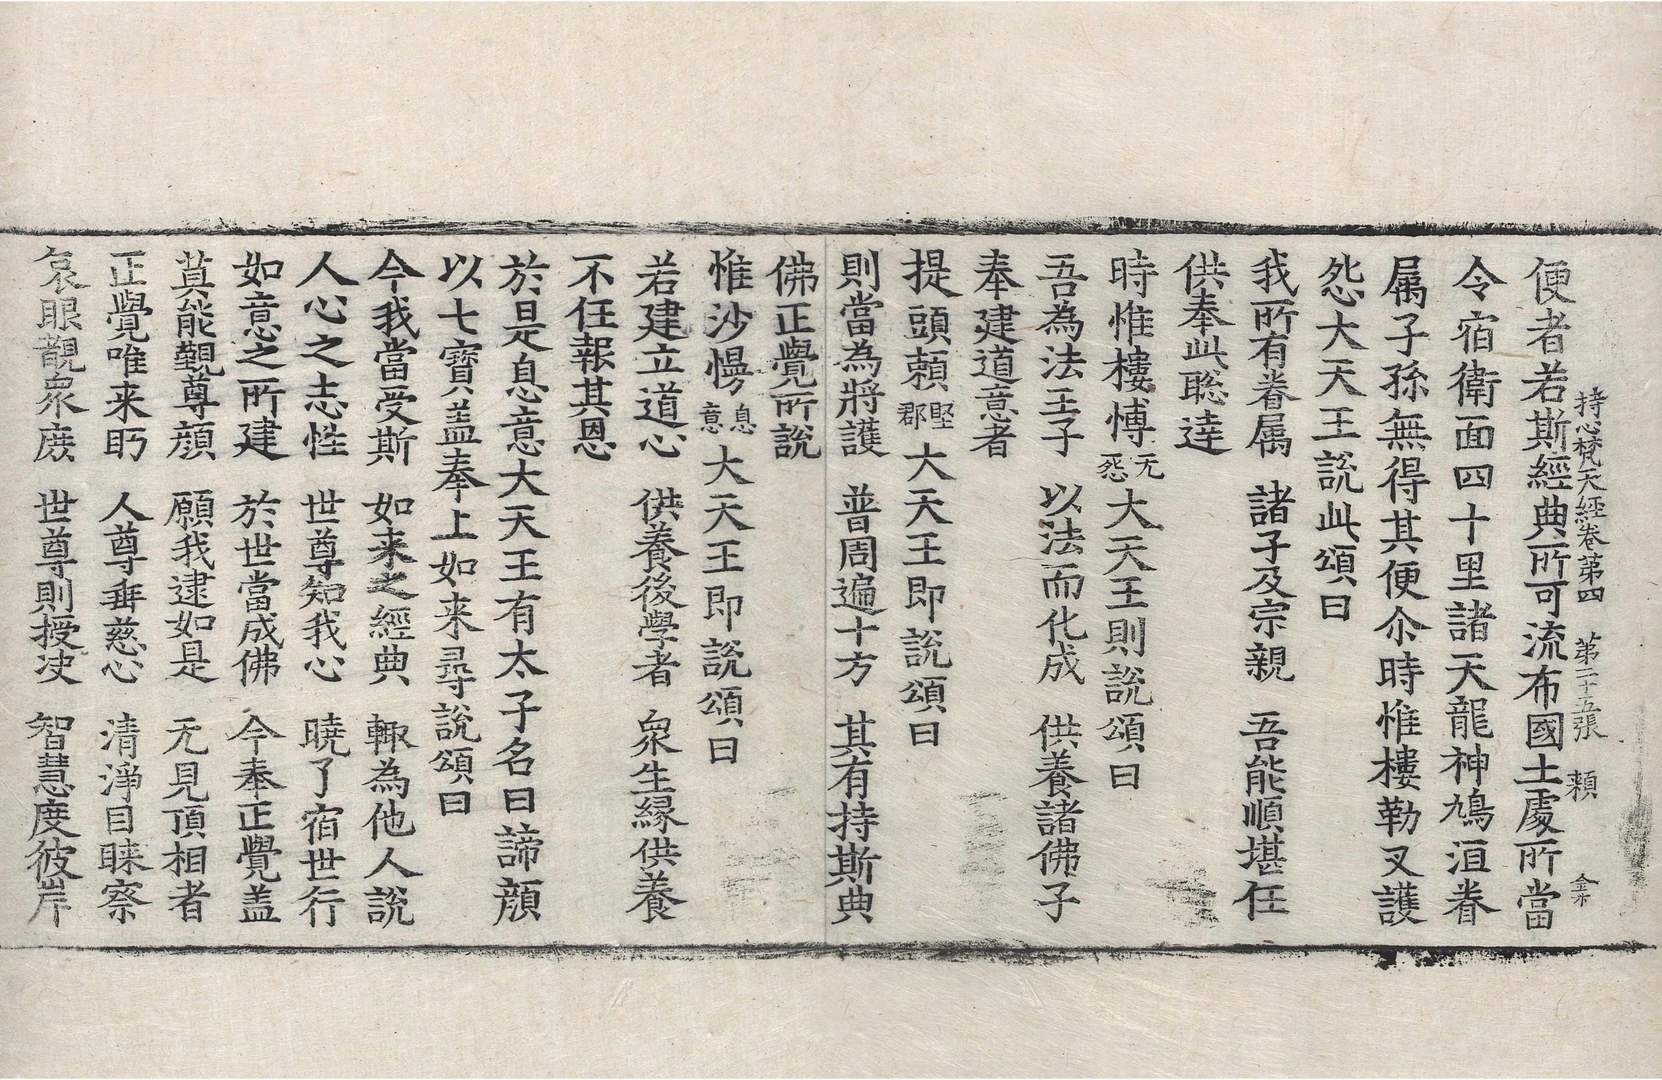 持心梵天経卷第四 第二十五張 頼 金木
便者若斯經典所可流布國土處所當
令宿衛面四十里諸天龍神鳩洹眷
属子孫無得其便尒時惟樓勒叉護
怨大天王說此頌曰
我所有眷属 諸子及宗親 吾能順堪任
供奉此聡達
時惟樓愽无怨大天王則說頌曰
吾為法王子 以法而化成 供養諸佛子
奉建道意者
提頭頼堅郡大天王即說頌曰
則當為將護 普周遍十方 其有持斯典
佛正覺所說
惟沙慢息意大天王即說頌曰
若建立道心 供養後學者 衆生緣供養
不任報其恩
於是息意大天王有太子名曰諦顔
以七寶盖奉上如来尋說頌曰
今我當受斯 如来之經典 輙為他人說
人心之志性 世尊知我心 曉了宿世行
如意之所建 於世當成佛 今奉正覺盖
其能觀尊顔 願我逮如是 无見頂相者
正覺唯来眄 人尊垂慈心 清淨目睞察
哀眼觀衆庻 世尊則授决 智慧度彼岸